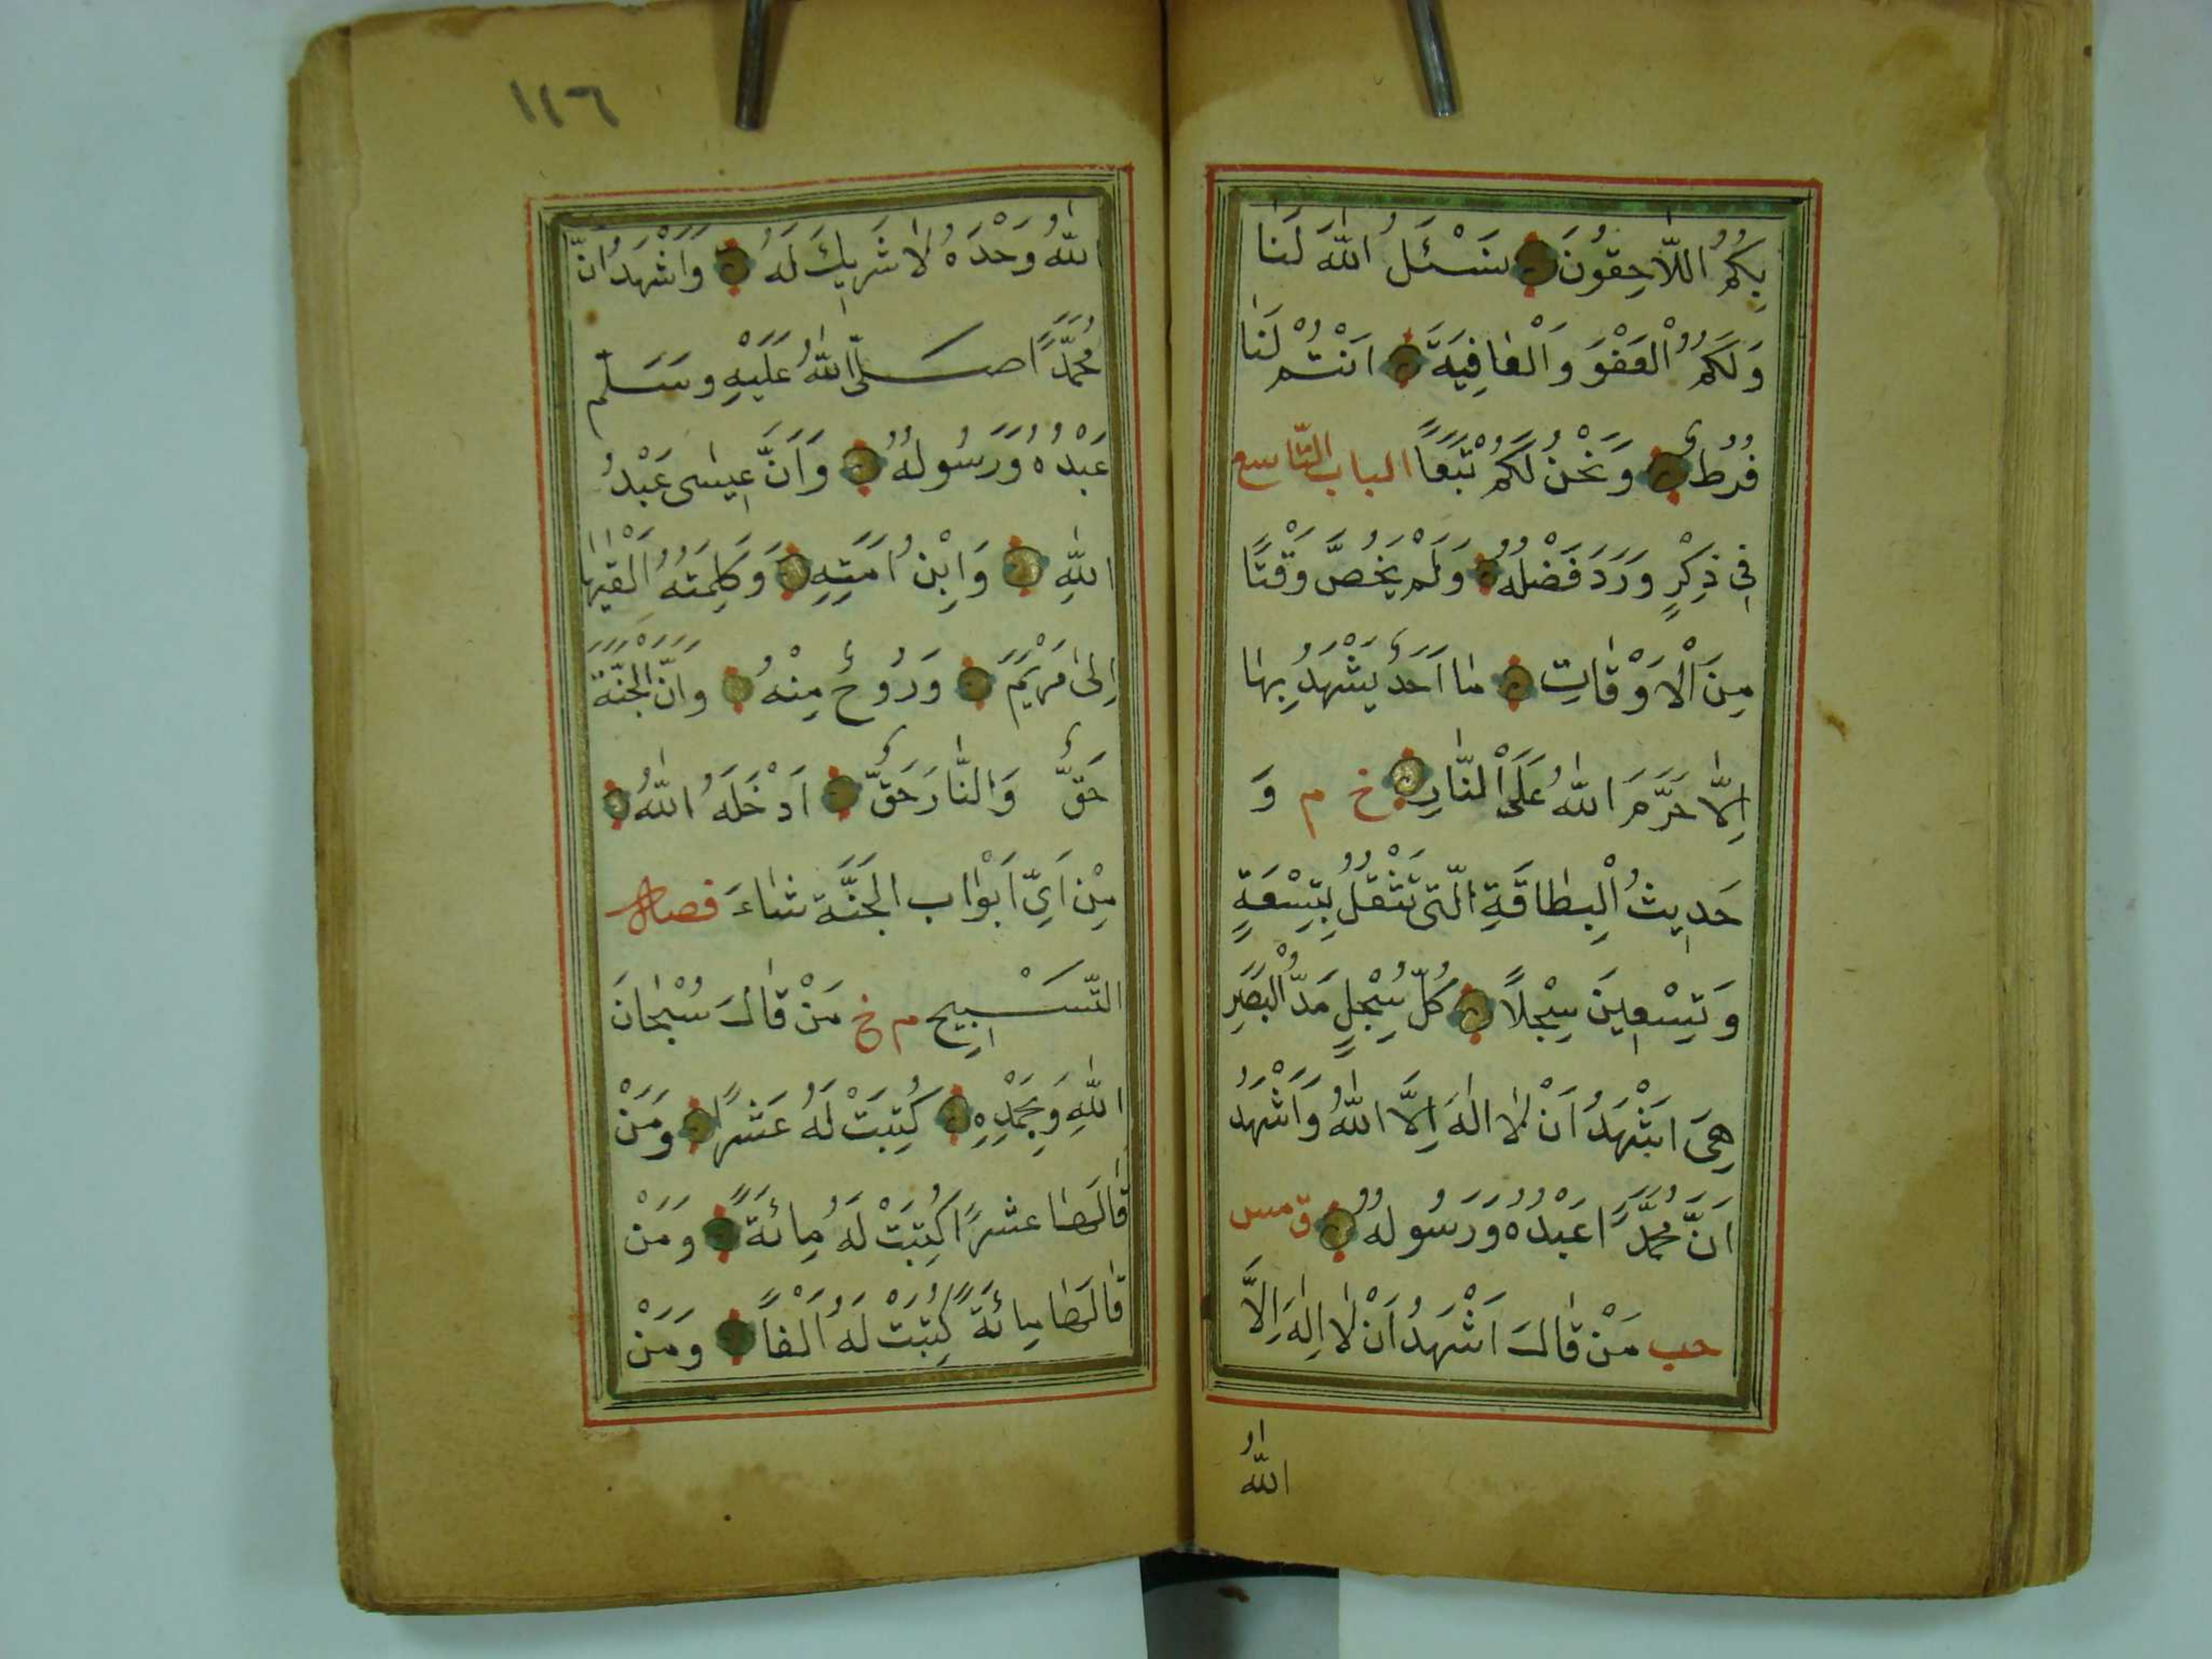 بِكُمُ اللّٰاحِقُونَ نَسْئَلُ اللّٰهَ لَنٰا
وَلَكُمُ الْعَفْوَ وَالْعٰافِيَةَ اَنْتُمْ لَنٰا
فُرُطٌ وَنَحْنُ لَكُمْ تَبَعًا الباب التّاسع
فِى ذِكْرٍ وَرَدَ فَضْلُهُ وَلَمْ يَخُصَّ وَقْتًا
مِنَ الْاَوْقٰاتِ مٰا اَحَدٌ يَشْهَدُ بِهٰا
اِلّٰا حَرَّمَهُ اللّٰهُ عَلَى النّٰارِ خ م وَ
حَدِيثُ الْبِطٰاقَةِ الَّتِى تَثْقُلُ بِتِسْعَةٍ
وَتِسْعِينَ سِجِلًّا كُلُّ سِجِلٍّ مَدُّ الْبَصَرِ
هِىَ اَشْهَدُ اَنْ لٰا اِلٰهَ اِلَّا اللّٰهُ وَاَشْهَدُ
اَنَّ مُحَمَّدًا عَبْدُهُ وَرَسُولُهُ ق مس
حب مَنْ قٰالَ اَشْهَدُ اَنْ لٰا اِلٰهَ اِلَّا
اللّٰهُ
١٢٦
اللّٰهُ وَحْدَهُ لٰا شَرِيكَ لَهُ وَاَشْهَدُ اَنَّ
مُحَمَّدًا صَلَّى اللّٰهُ عَلَيْهِ وَسَلَّم
عَبْدُهُ وَرَسُولُهُ وَاَنَّ عِيسٰى عَبْدُ
اللّٰهِ وَابْنُ اَمَتِهِ وَكَلِمَتُهُ اَلْقٰيهٰا
اِلىٰ مَرْيَمَ وَرُوحٌ مِنْهُ وَاَنَّ الْجَنَّةَ
حَقٌّ وَالنّٰارَ حَقٌّ اَدْخَلَهُ اللّٰهُ
مِنْ اَىِّ اَبْوٰابِ الْجَنَّةِ شٰاءَ فصل
التَّسْبِيحِ م خ مَنْ قٰالَ سُبْحٰانَ
اللّٰهِ وَبِحَمْدِهِ كُتِبَتْ لَهُ عَشْرًا وَمَنْ
قٰالَهٰا عَشْرًا كُتِبَتْ لَهُ مِائَةً وَمَنْ
قٰالَهٰا مِائَةً كُتِبَتْ لَهُ اَلْفًا وَمَنْ